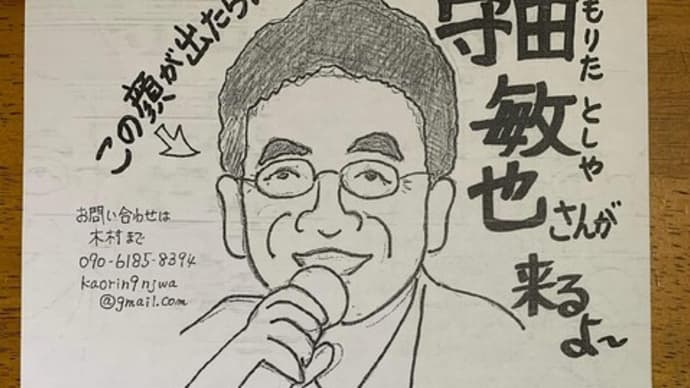 この顔が出たら
守田
敏也
さんが
来るよ〜
もりた としや
お問い合わせは
木村まで
090-6185-8394
kaorin9njwa
@gmail.com